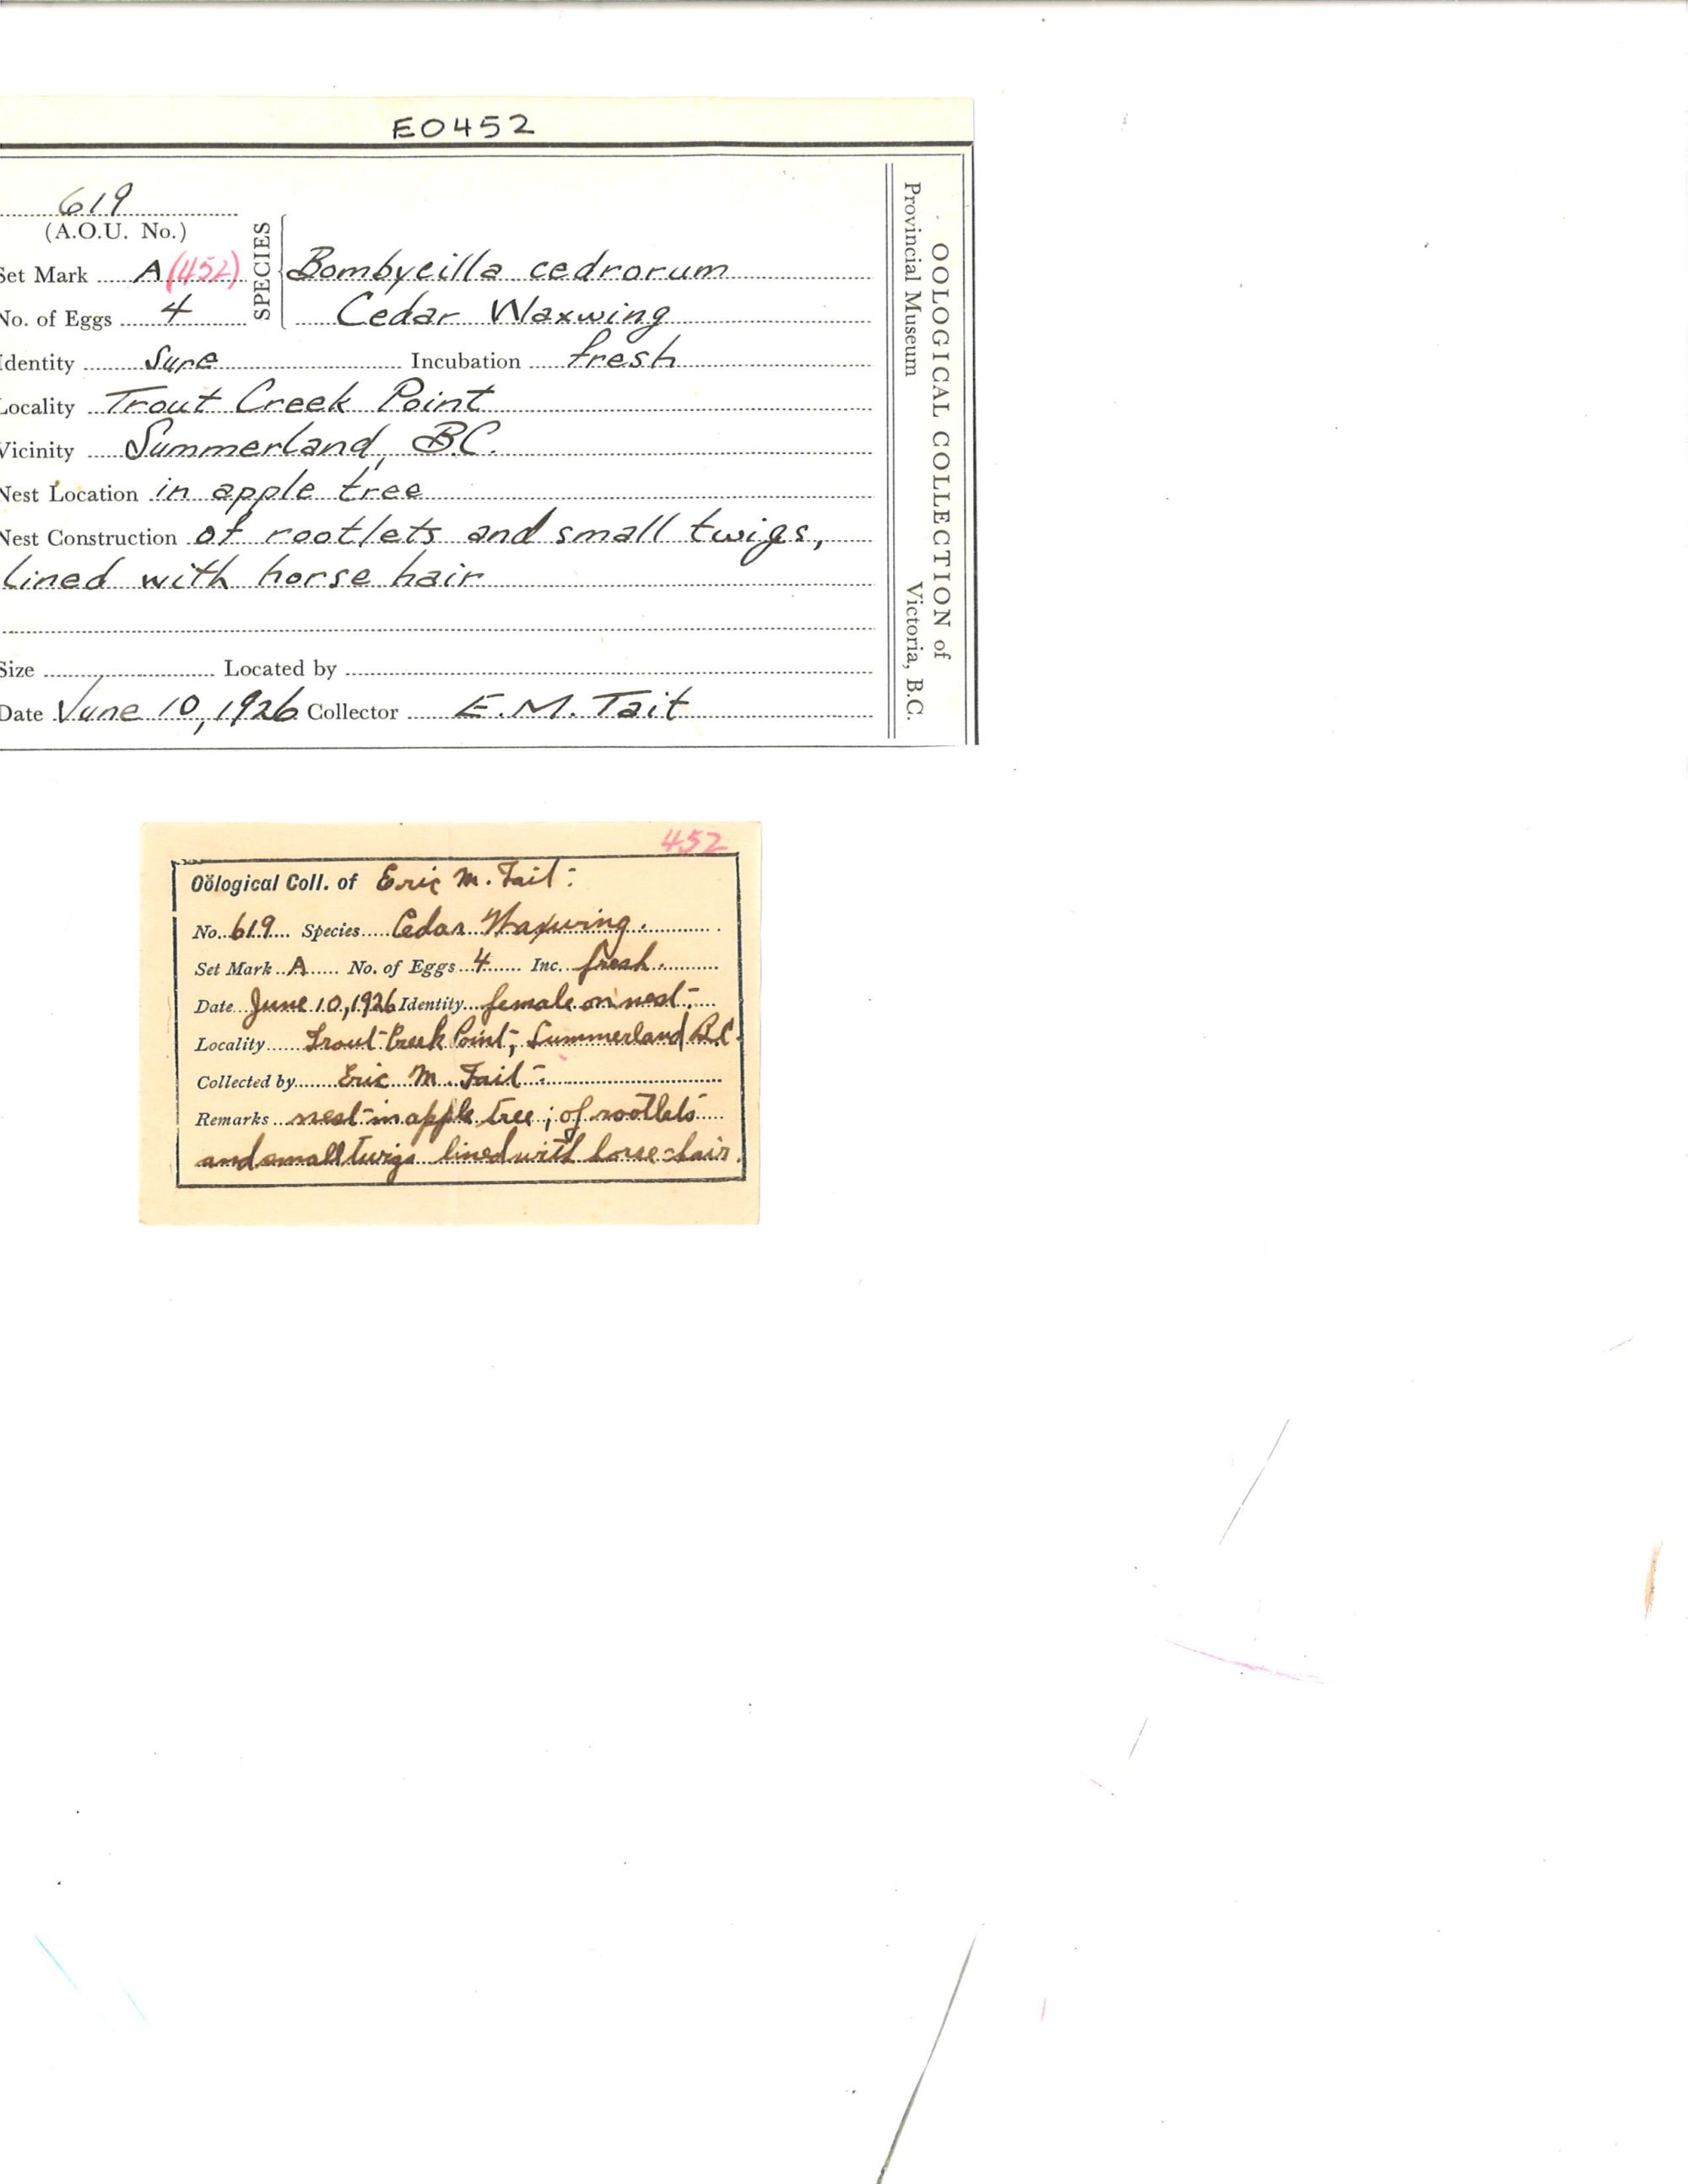 E0452
619
(A.O.U. No.)
SPECIES
Set Mark A (452)
Bombycilla cedrorum
No. of Eggs 4
Cedar Waxwing
Identity Sure Incubation fresh
Locality Trout Creek Point
Vicinity Summerland, B.C.
Nest Location in apple tree
Nest Construction of rootlets and small twigs,
lined with horse hair
Size Located by
Date June 10, 1926 Collector E.M. Tait
OOLOGICAL COLLECTION of
Provincial Museum Victoria, B.C.
452
Oölogical Coll. of Eric M. Tait
No. 619 Species Cedar Waxwing.
Set Mark A No. of Eggs 4 Inc. fresh.
Date June 10, 1926 Identity female on nest
Locality Trout Creek Point, Summerland B.C.
Collected by Eric M. Tait
Remarks nest in apple tree; of rootlets
and small twigs lined with horse-hair.